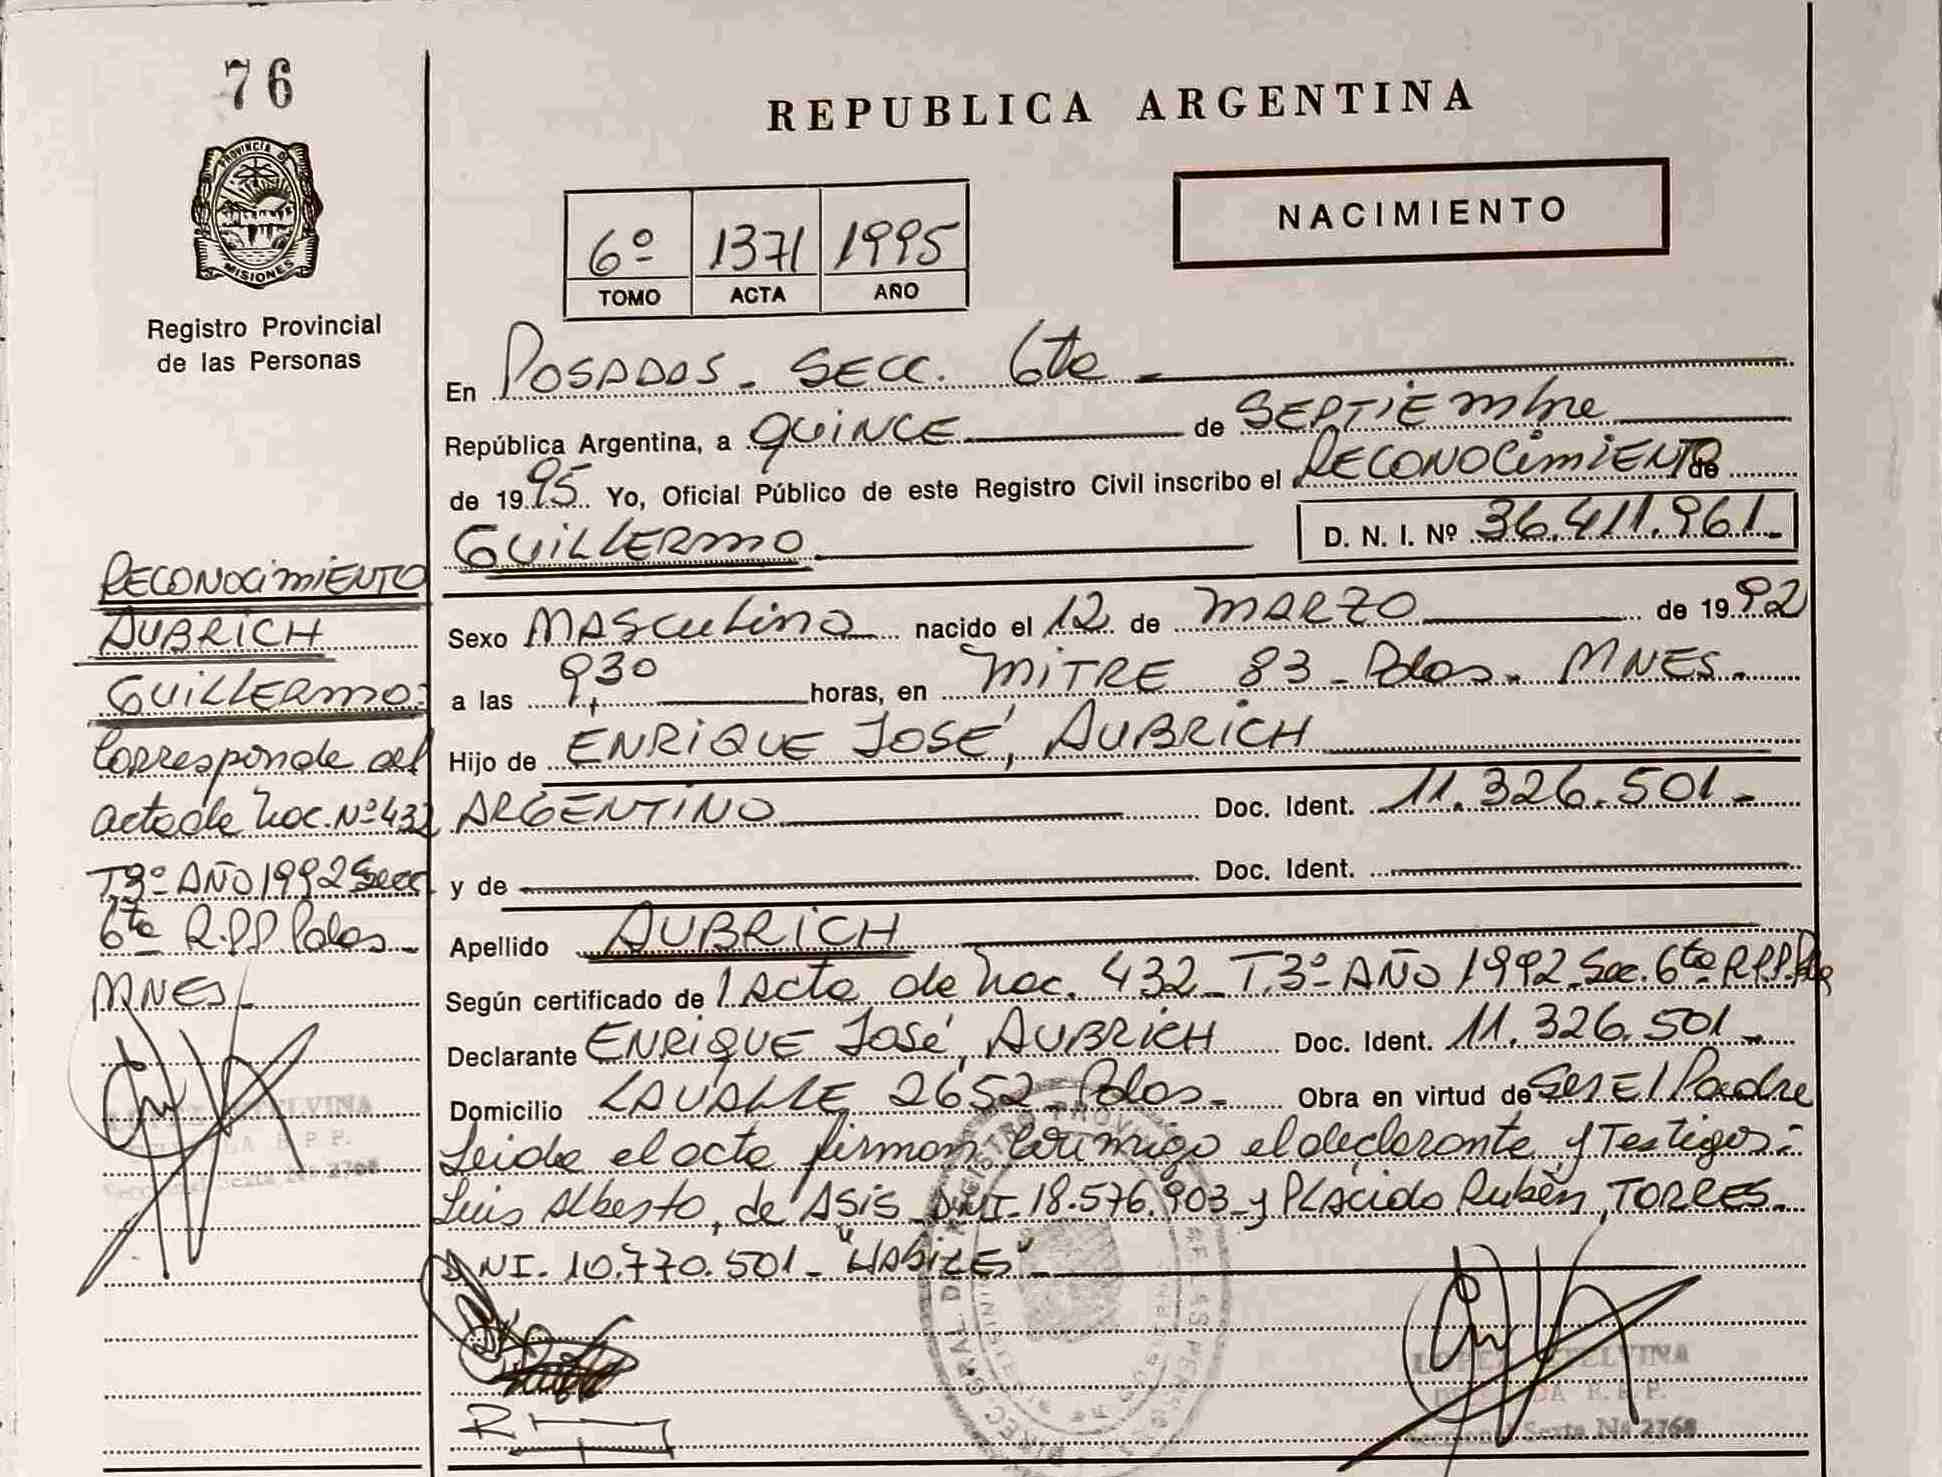 76
PROVINCIA DE
MISIONES
Registro Provincial
de las Personas
REPUBLICA ARGENTINA
NACIMIENTO
6º 1371 1995
TOMO ACTA AÑO
En POSADAS - SECC. 6ta -
República Argentina, a QUINCE de SEPTIEmbre
de 1995. Yo, Oficial Público de este Registro Civil inscribo el RECONOCIMIENTO de
GUILLERMO D. N. I. Nº 36.411.961.-
Sexo MASCULINO nacido el 12 de MARZO de 1992
a las 9,30 horas, en MITRE 83 - Pdas - MNES -
Hijo de ENRIQUE JOSÉ, AUBRICH
ARGENTINO Doc. Ident. 11.326.501.-
y de Doc. Ident.
Apellido AUBRICH
Según certificado de 1 Acta de Nac. 432 - T.3º AÑO 1992 - Sec. 6ta R.P.P. Pdas
Declarante ENRIQUE JOSÉ, AUBRICH Doc. Ident. 11.326.501.-
Domicilio LAVALLE 2652 - Pdas - Obra en virtud de Ser El Padre
Leida el acta firman conmigo el declarante y Testigos:
Luis Alberto, de ASIS DNI. 18.576.903 - y PLACIDO Rubén, TORRES -
DNI. 10.770.501 - "HABILES"
RECONOCIMIENTO
AUBRICH
GUILLERMO:
Corresponde al
acta de Nac. Nº 432
T.3º AÑO 1992 Secc
6ta R.P.P. Pdas -
MNES.
ETELVINA
R. P. P.
Sexta Nº 2768
LOPEZ ETELVINA
R. P. P.
Seccional Sexta Nº 2768